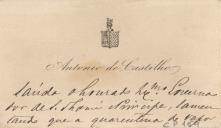 Antonio de Castilho
saúda o honrado Exmo Governa
dor de S. Thomé e Principe, lamen
tando que a quarentena de